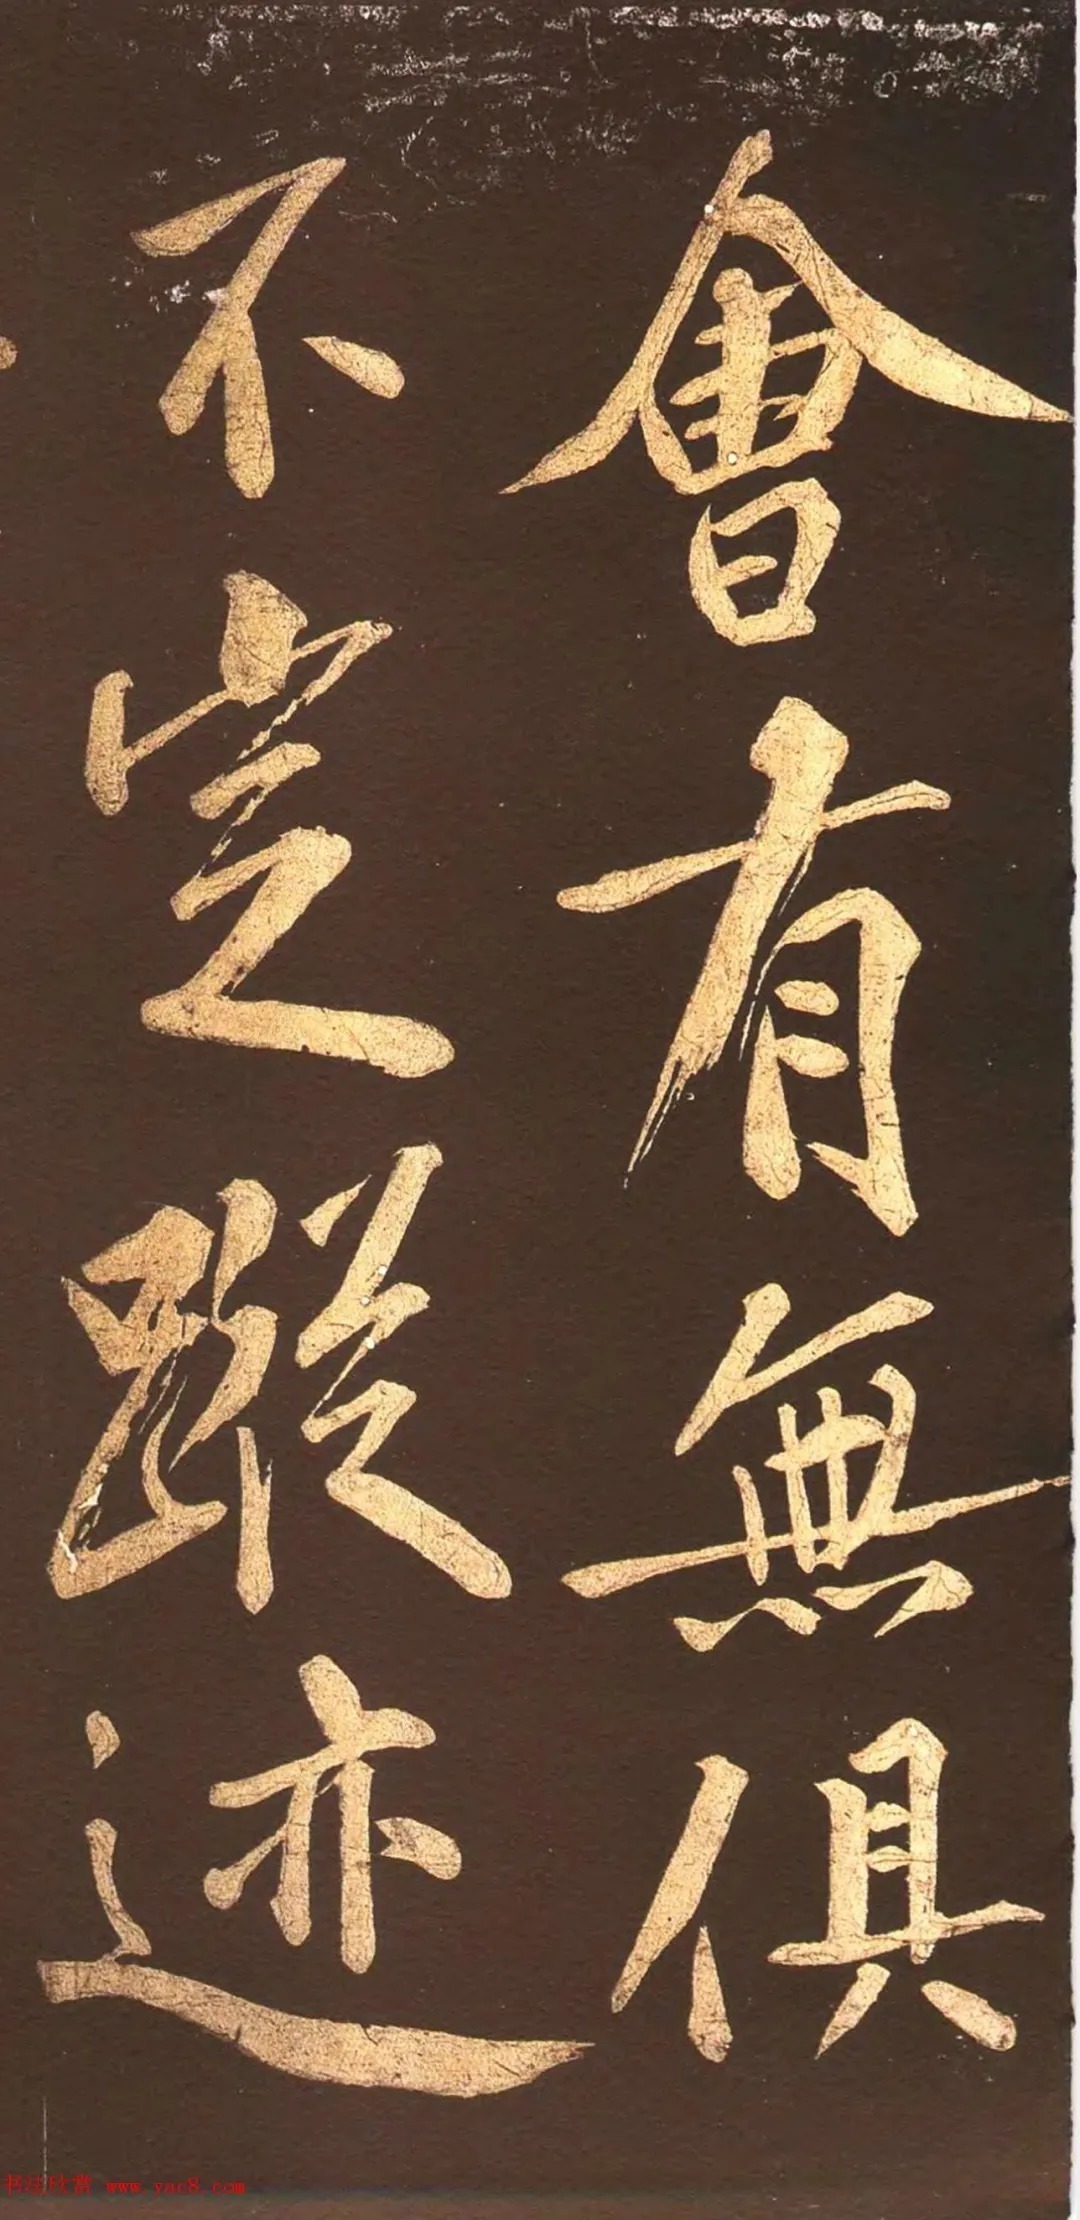 會有無俱
不定蹤迹
书法欣赏 www.yac8.com